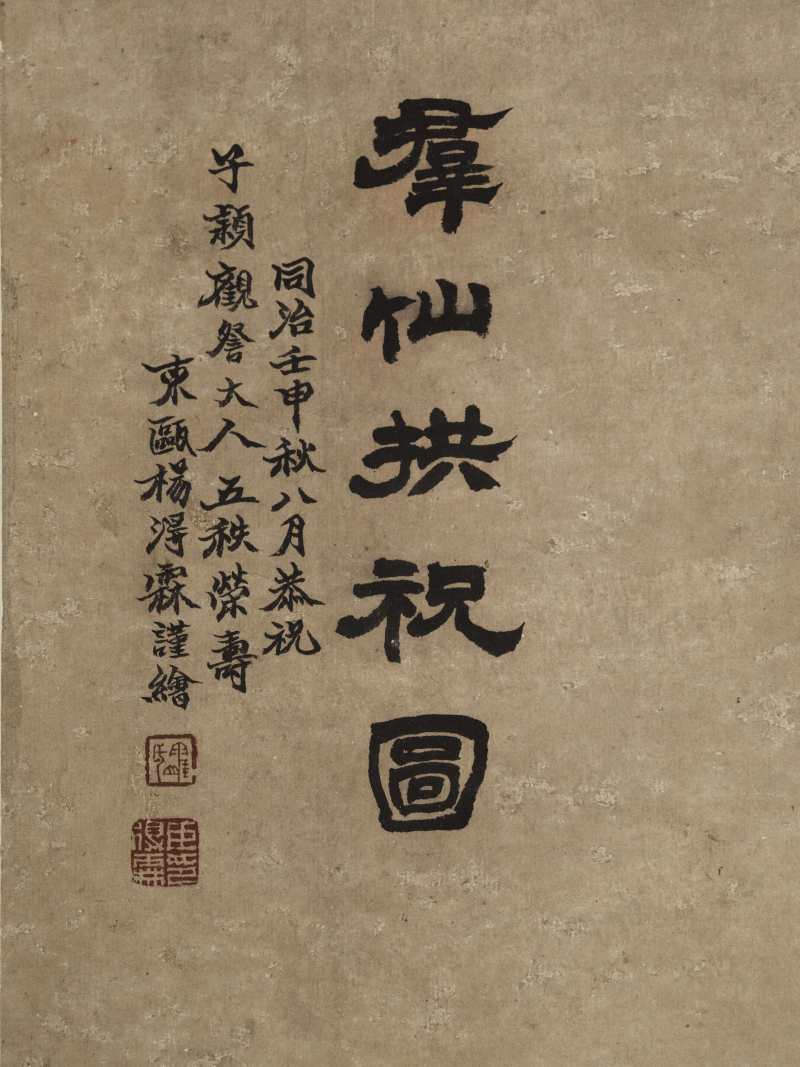 羣仙拱祝圖
同治壬申秋八月恭祝
子穎觀詧大人五秩榮壽
東甌楊淂霖謹繪